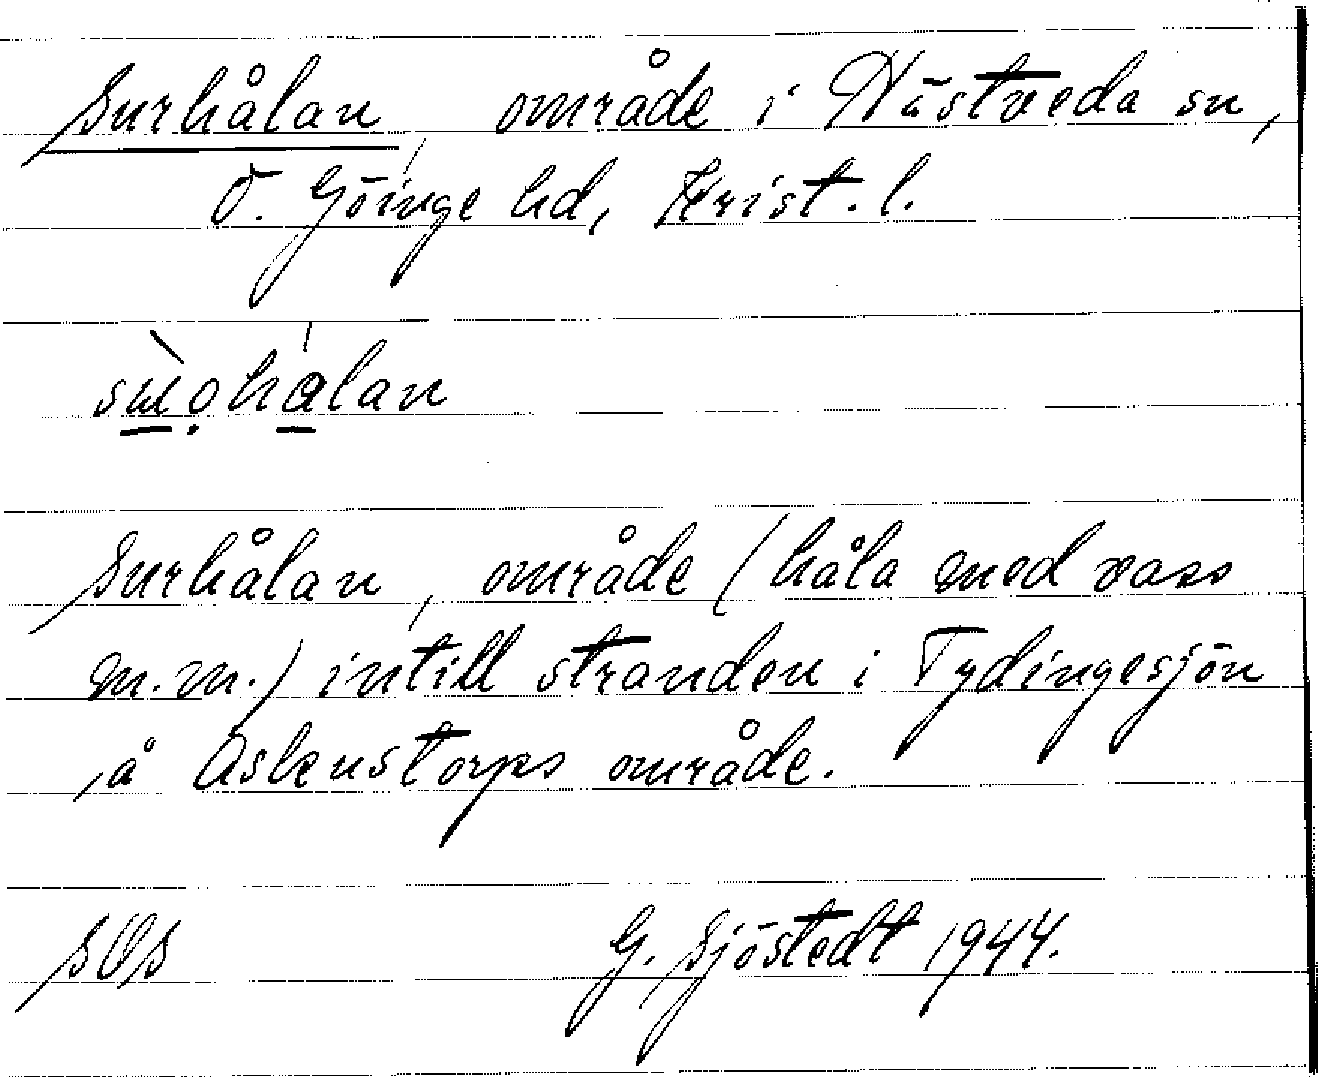 Surhålan, område i Hästveda sn,
Ö. Göinge hd, Krist. l.
Surhålan, område (håla med vass
m.m.) intill stranden i Tydingesjön
å Askenstorps område.
SOS G. Sjöstedt 1944.